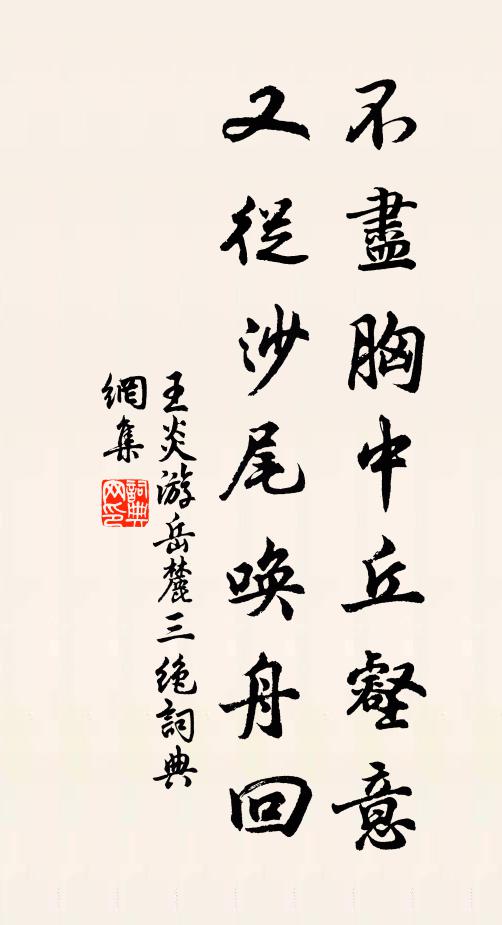 不盡胸中丘壑意
又從沙尾喚舟回
王炎游岳麓三絶詞典
網集
詞典網印